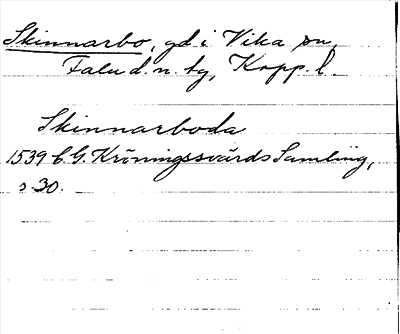 Skinnarbo, gd i Vika sn,
Falu d. n. tg, Kopp. l.
Skinnarboda
1539 C. G. Kröningssvärds Samling,
s 30.